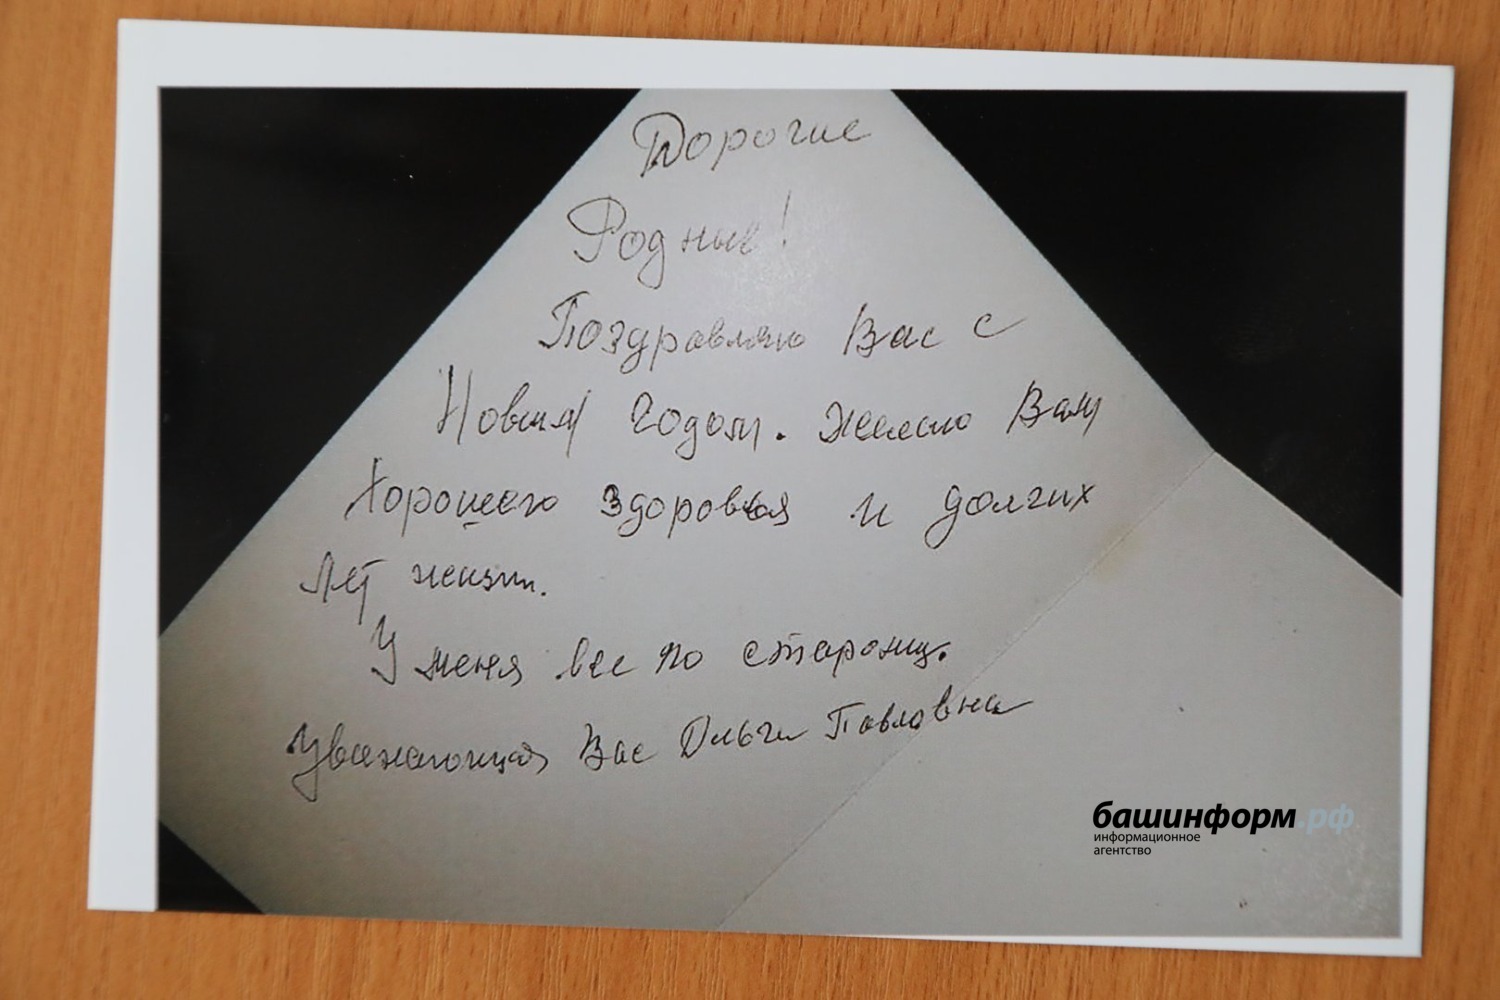 Дорогие
Родные!
Поздравляю Вас с
Новым годом. Желаю Вам
Хорошего здоровья и долгих
лет жизни.
У меня все по старому.
Уважающая Вас Ольга Павловна
башинформ.рф
информационное
агентство